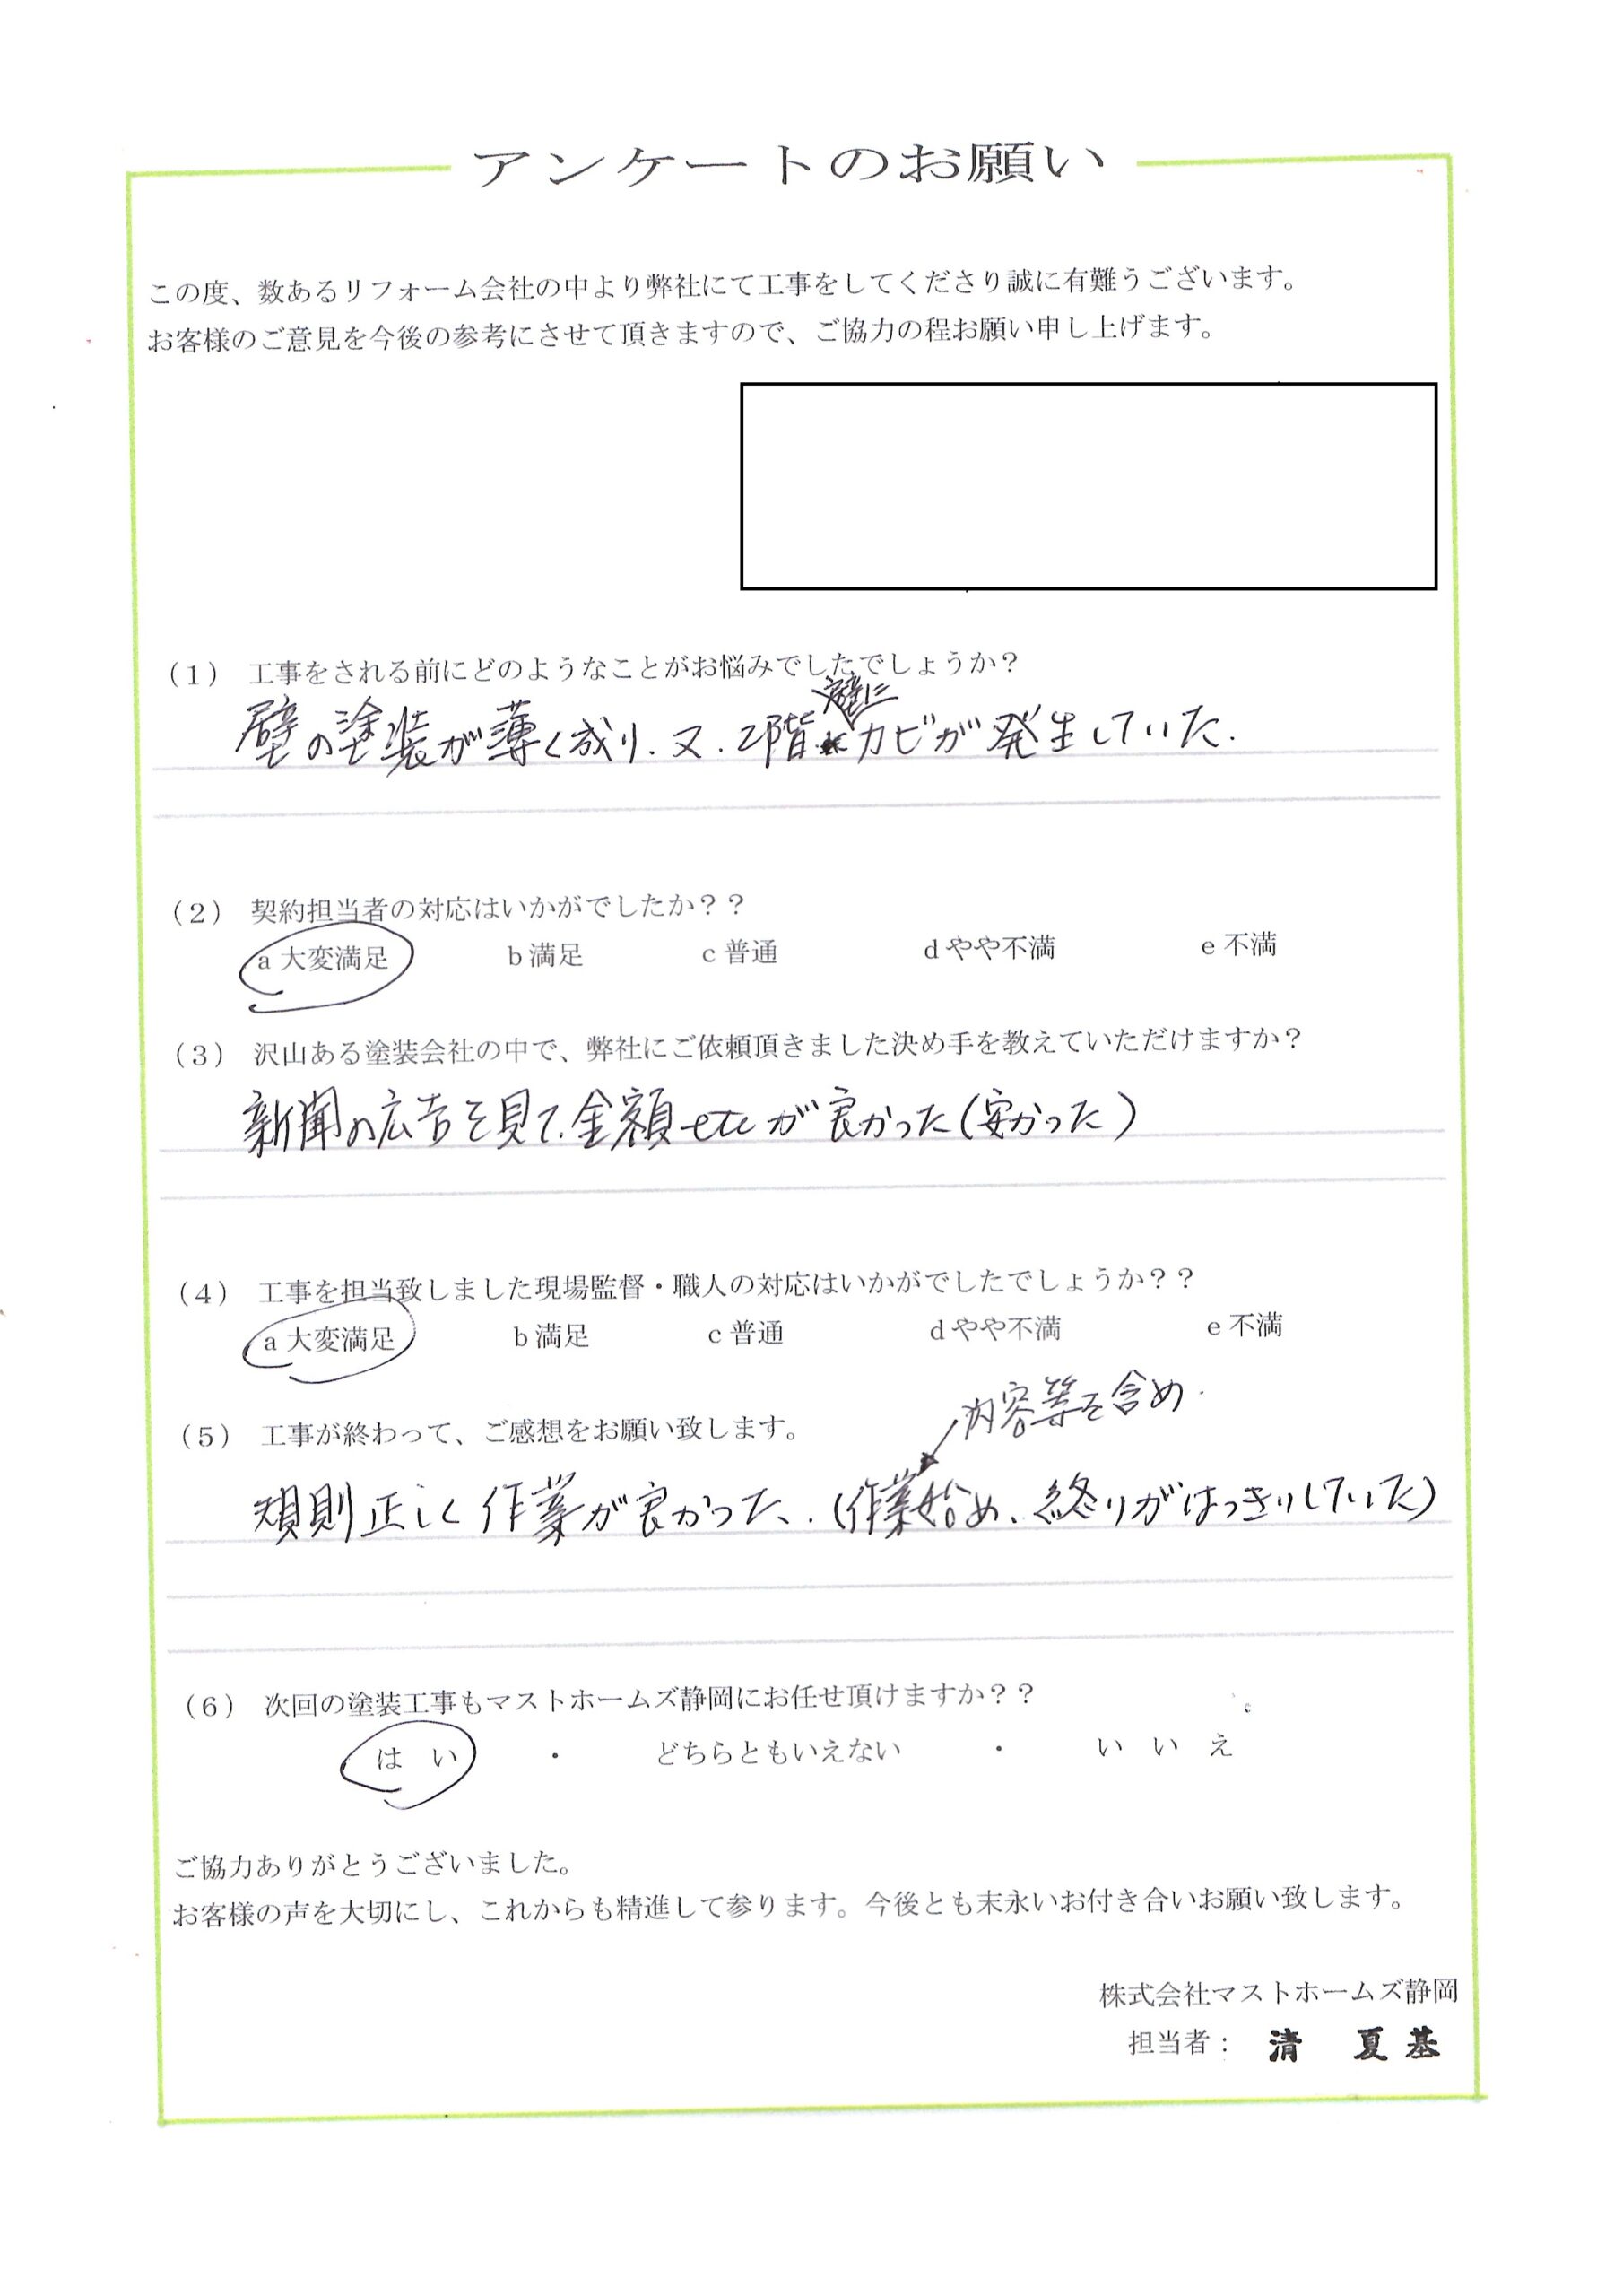 アンケートのお願い
この度、数あるリフォーム会社の中より弊社にて工事をしてくださり誠に有難うございます。
お客様のご意見を今後の参考にさせて頂きますので、ご協力の程お願い申し上げます。
（1） 工事をされる前にどのようなことがお悩みでしたでしょうか？
壁に
壁の塗装が薄く成り、又、2階カビが発生していた.
（2） 契約担当者の対応はいかがでしたか？？
a 大変満足 b 満足 c 普通 d やや不満 e 不満
（3） 沢山ある塗装会社の中で、弊社にご依頼頂きました決め手を教えていただけますか？
新聞の広告を見て、金額etcが良かった（安かった）
（4） 工事を担当致しました現場監督・職人の対応はいかがでしたでしょうか？？
a 大変満足 b 満足 c 普通 d やや不満 e 不満
内容等を含め.
（5） 工事が終わって、ご感想をお願い致します。
規則正しく作業が良かった、.（作業始め、終りがはっきりしていた）
（6） 次回の塗装工事もマストホームズ静岡にお任せ頂けますか？？
はい ・ どちらともいえない ・ いいえ
ご協力ありがとうございました。
お客様の声を大切にし、これからも精進して参ります。今後とも末永いお付き合いお願い致します。
株式会社マストホームズ静岡
担当者： 清 夏基